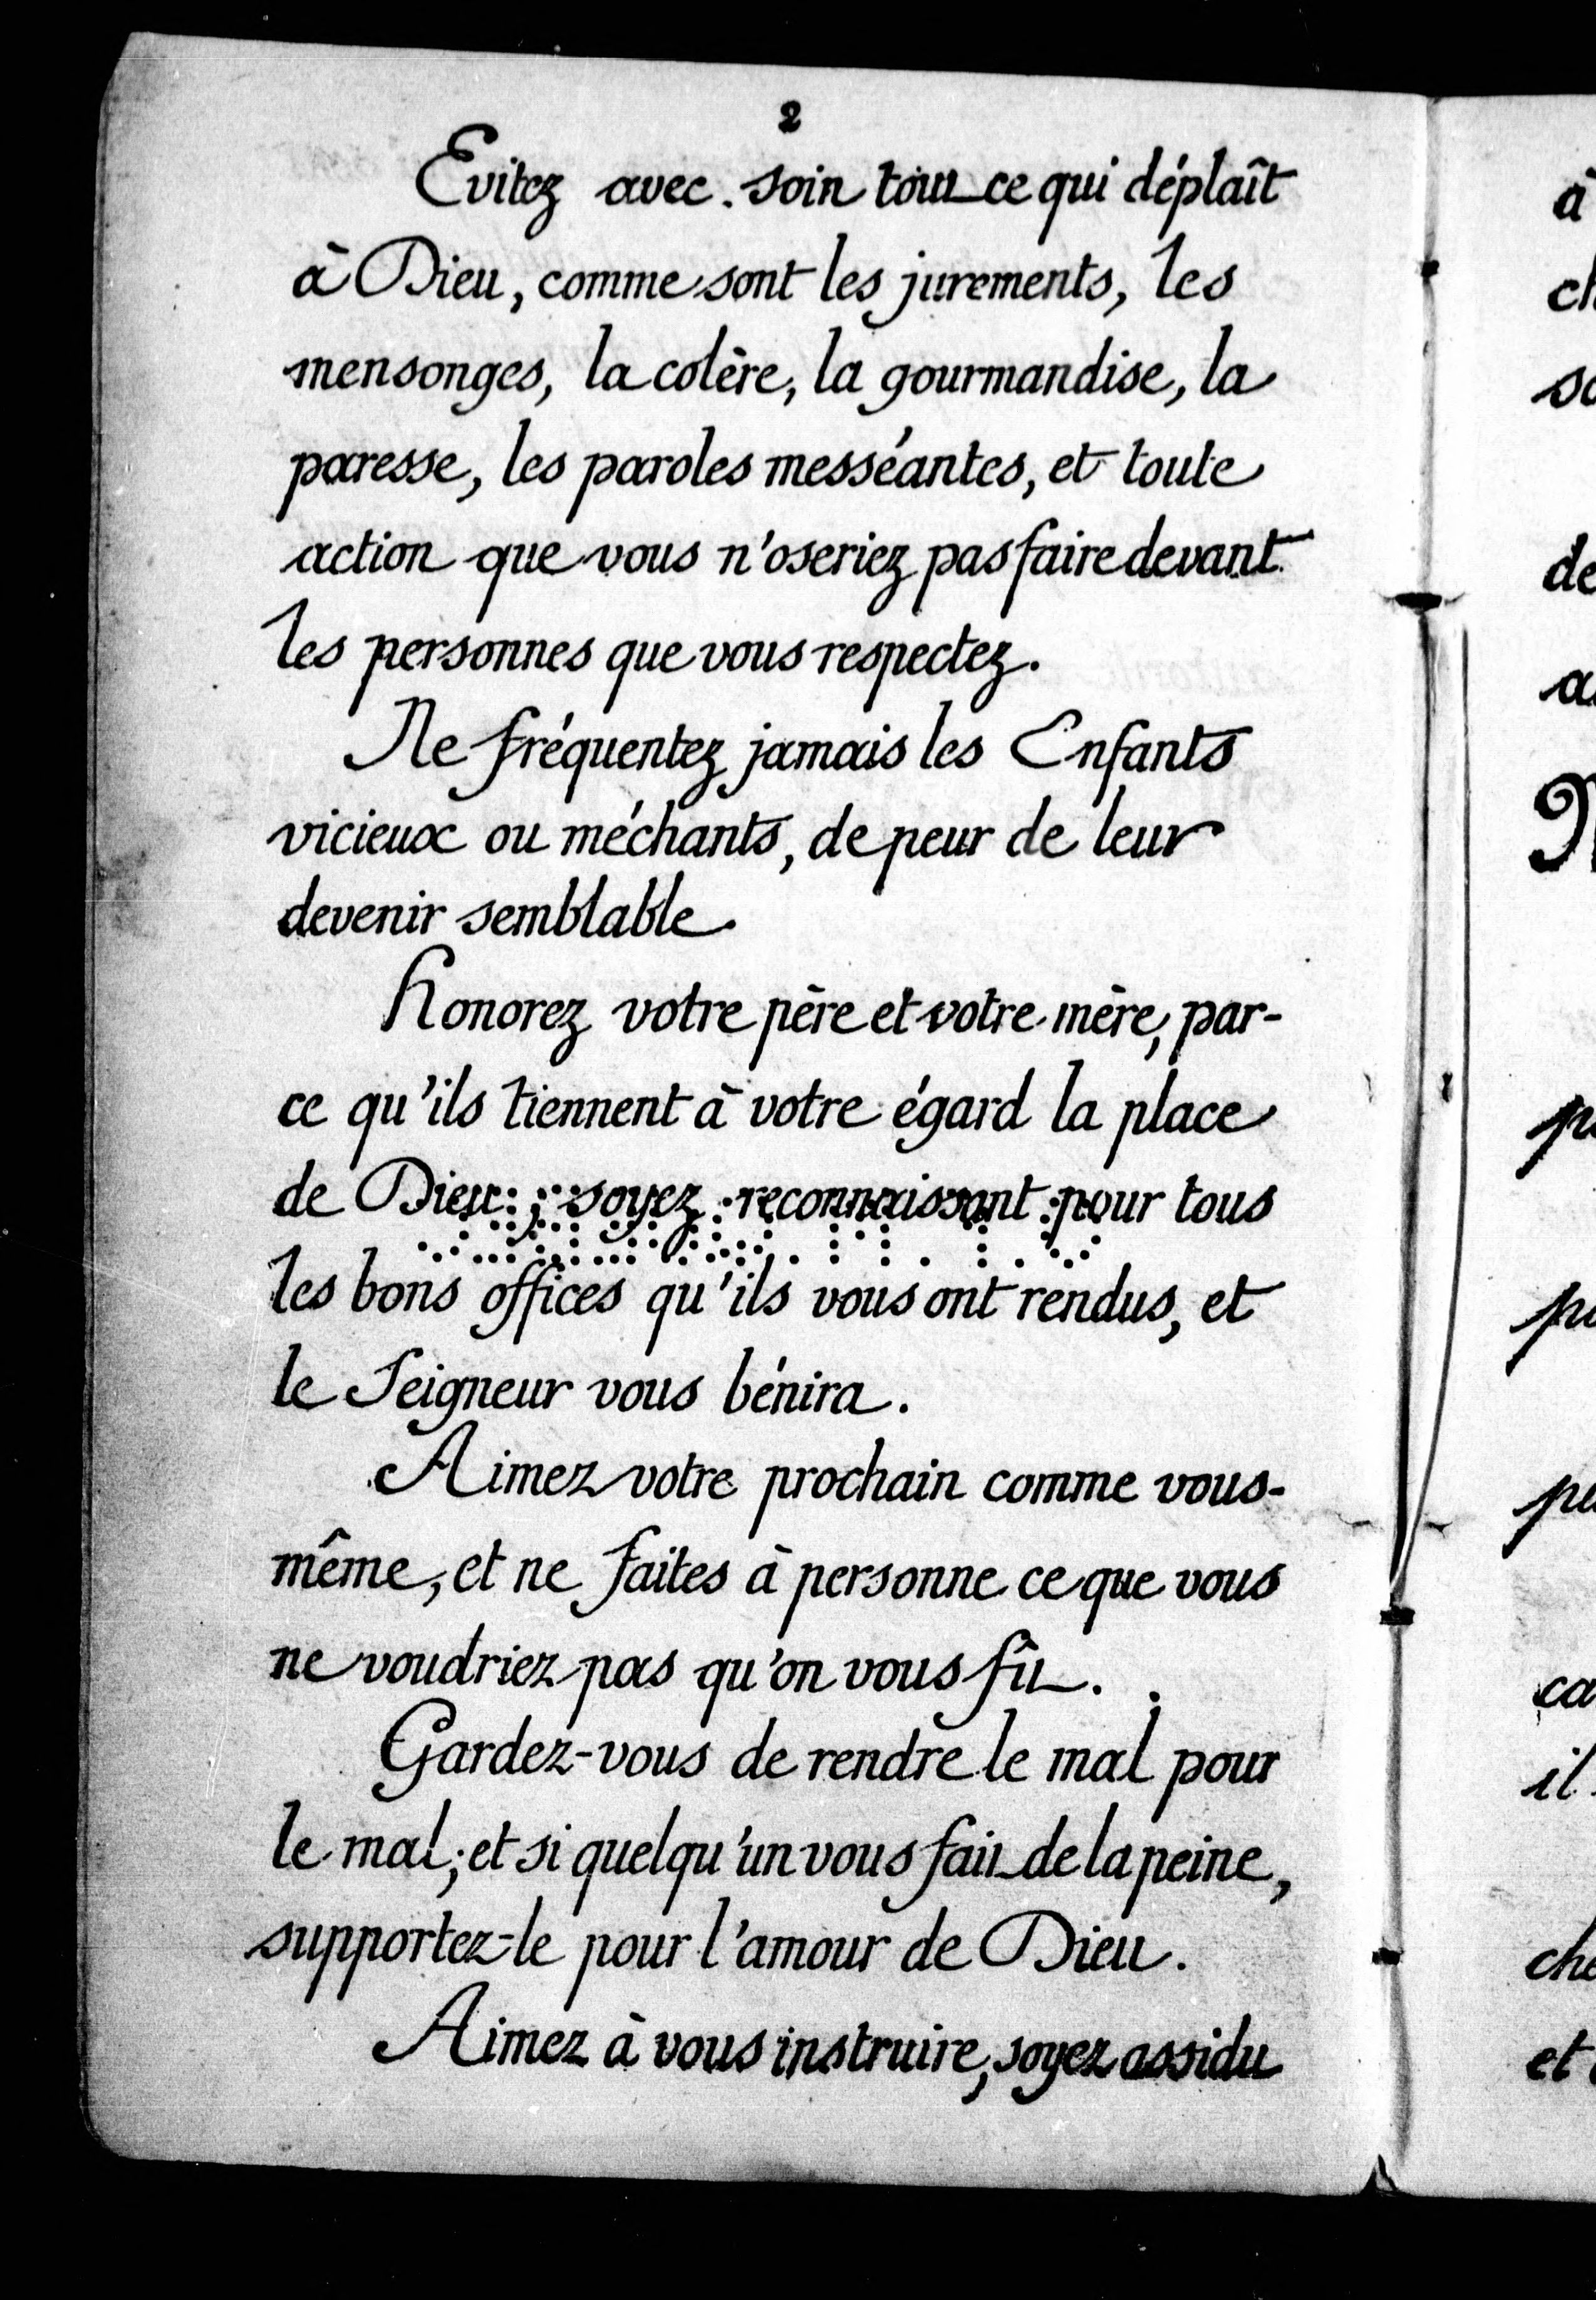 2
Evitez avec soin tout ce qui déplaît
à Dieu, comme sont les jurements, les
mensonges, la colère, la gourmandise, la
paresse, les paroles messéantes, et toute
action que vous n'oseriez pas faire devant
les personnes que vous respectez.
Ne fréquentez jamais les Enfants
vicieux ou méchants, de peur de leur
devenir semblable.
Honorez votre père et votre mère, par-
ce qu'ils tiennent à votre égard la place
de Dieu ; soyez reconnaissant pour tous
les bons offices qu'ils vous ont rendus, et
le Seigneur vous bénira.
Aimez votre prochain comme vous-
même, et ne faites à personne ce que vous
ne voudriez pas qu'on vous fît.
Gardez-vous de rendre le mal pour
le mal; et si quelqu'un vous fait de la peine,
supportez-le pour l'amour de Dieu.
Aimez à vous instruire, soyez assidu
à
de
il
et